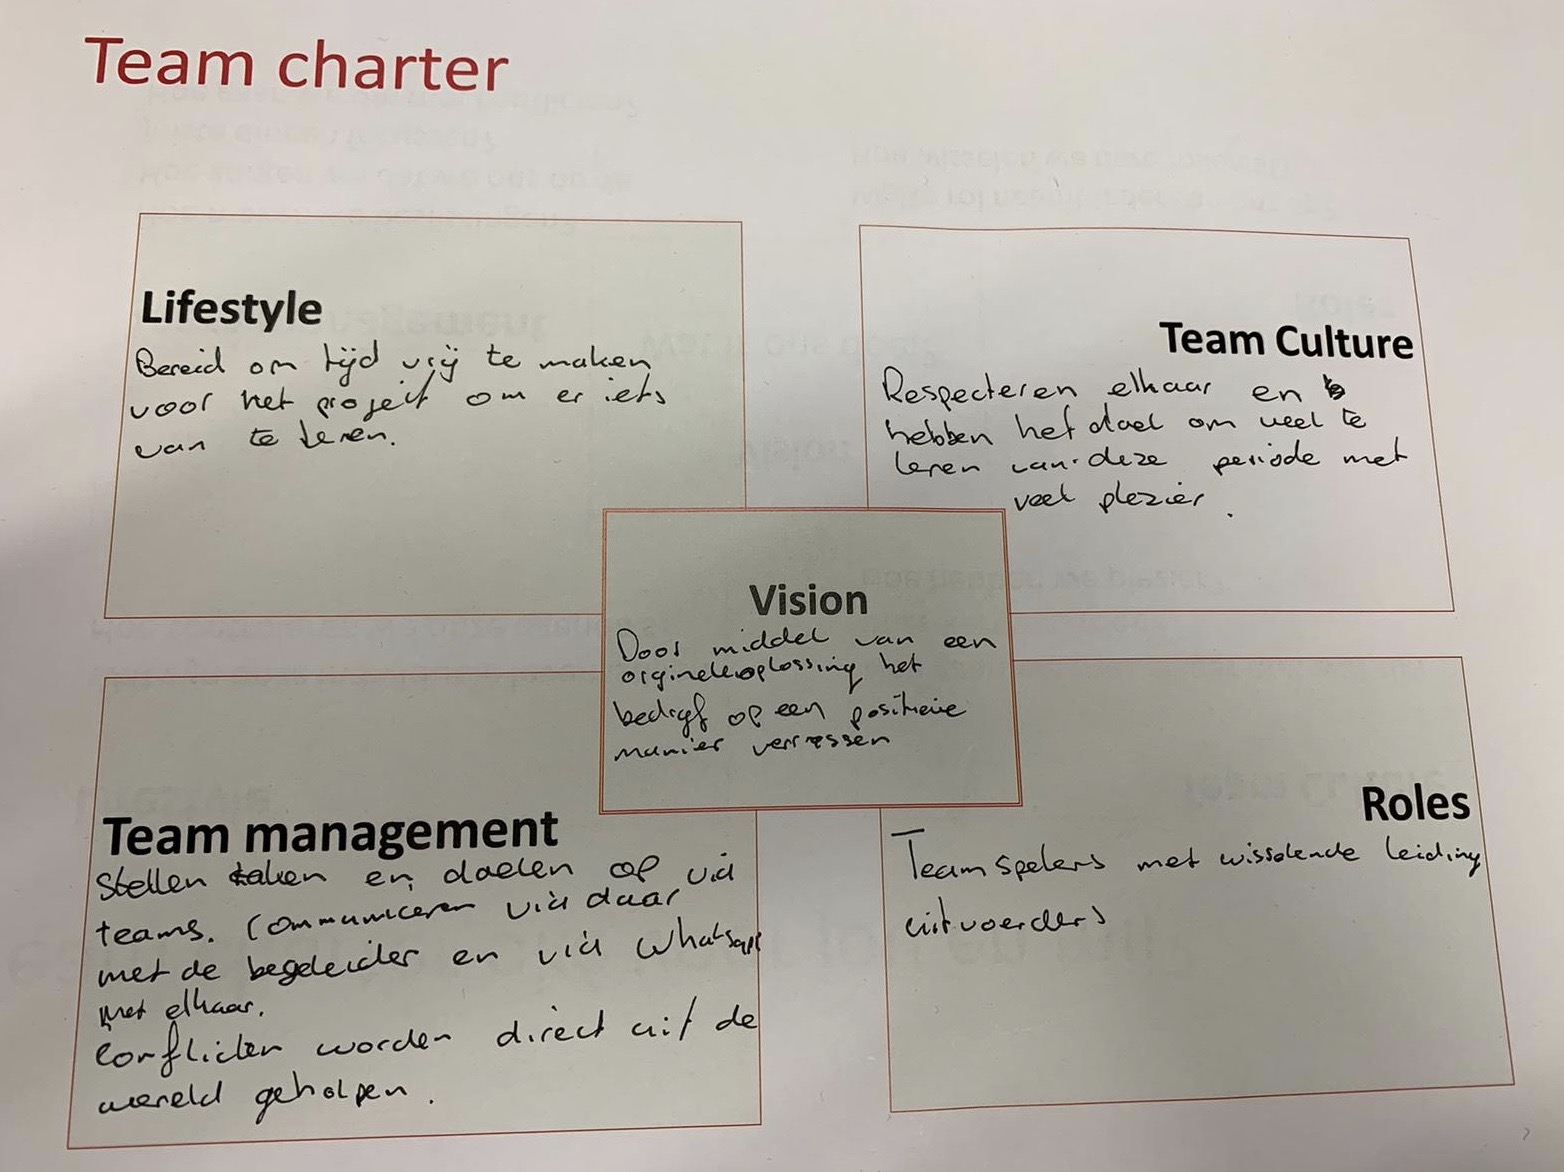 Team charter
Lifestyle
Bereid om tijd vrij te maken
voor het project om er iets
van te leren.
Team Culture
Respecteren elkaar en
hebben het doel om veel te
leren van deze periode met
veel plezier.
Vision
Door middel van een
orginele oplossing het
bedrijf op een positieve
manier verrassen
Team management
Stellen taken en doelen op via
teams. Communiceren via daar
met de begeleider en via Whatsapp
met elkaar.
Conflicten worden direct uit de
wereld geholpen.
Roles
Teamspelers met wisselende leiding
uitvoerders